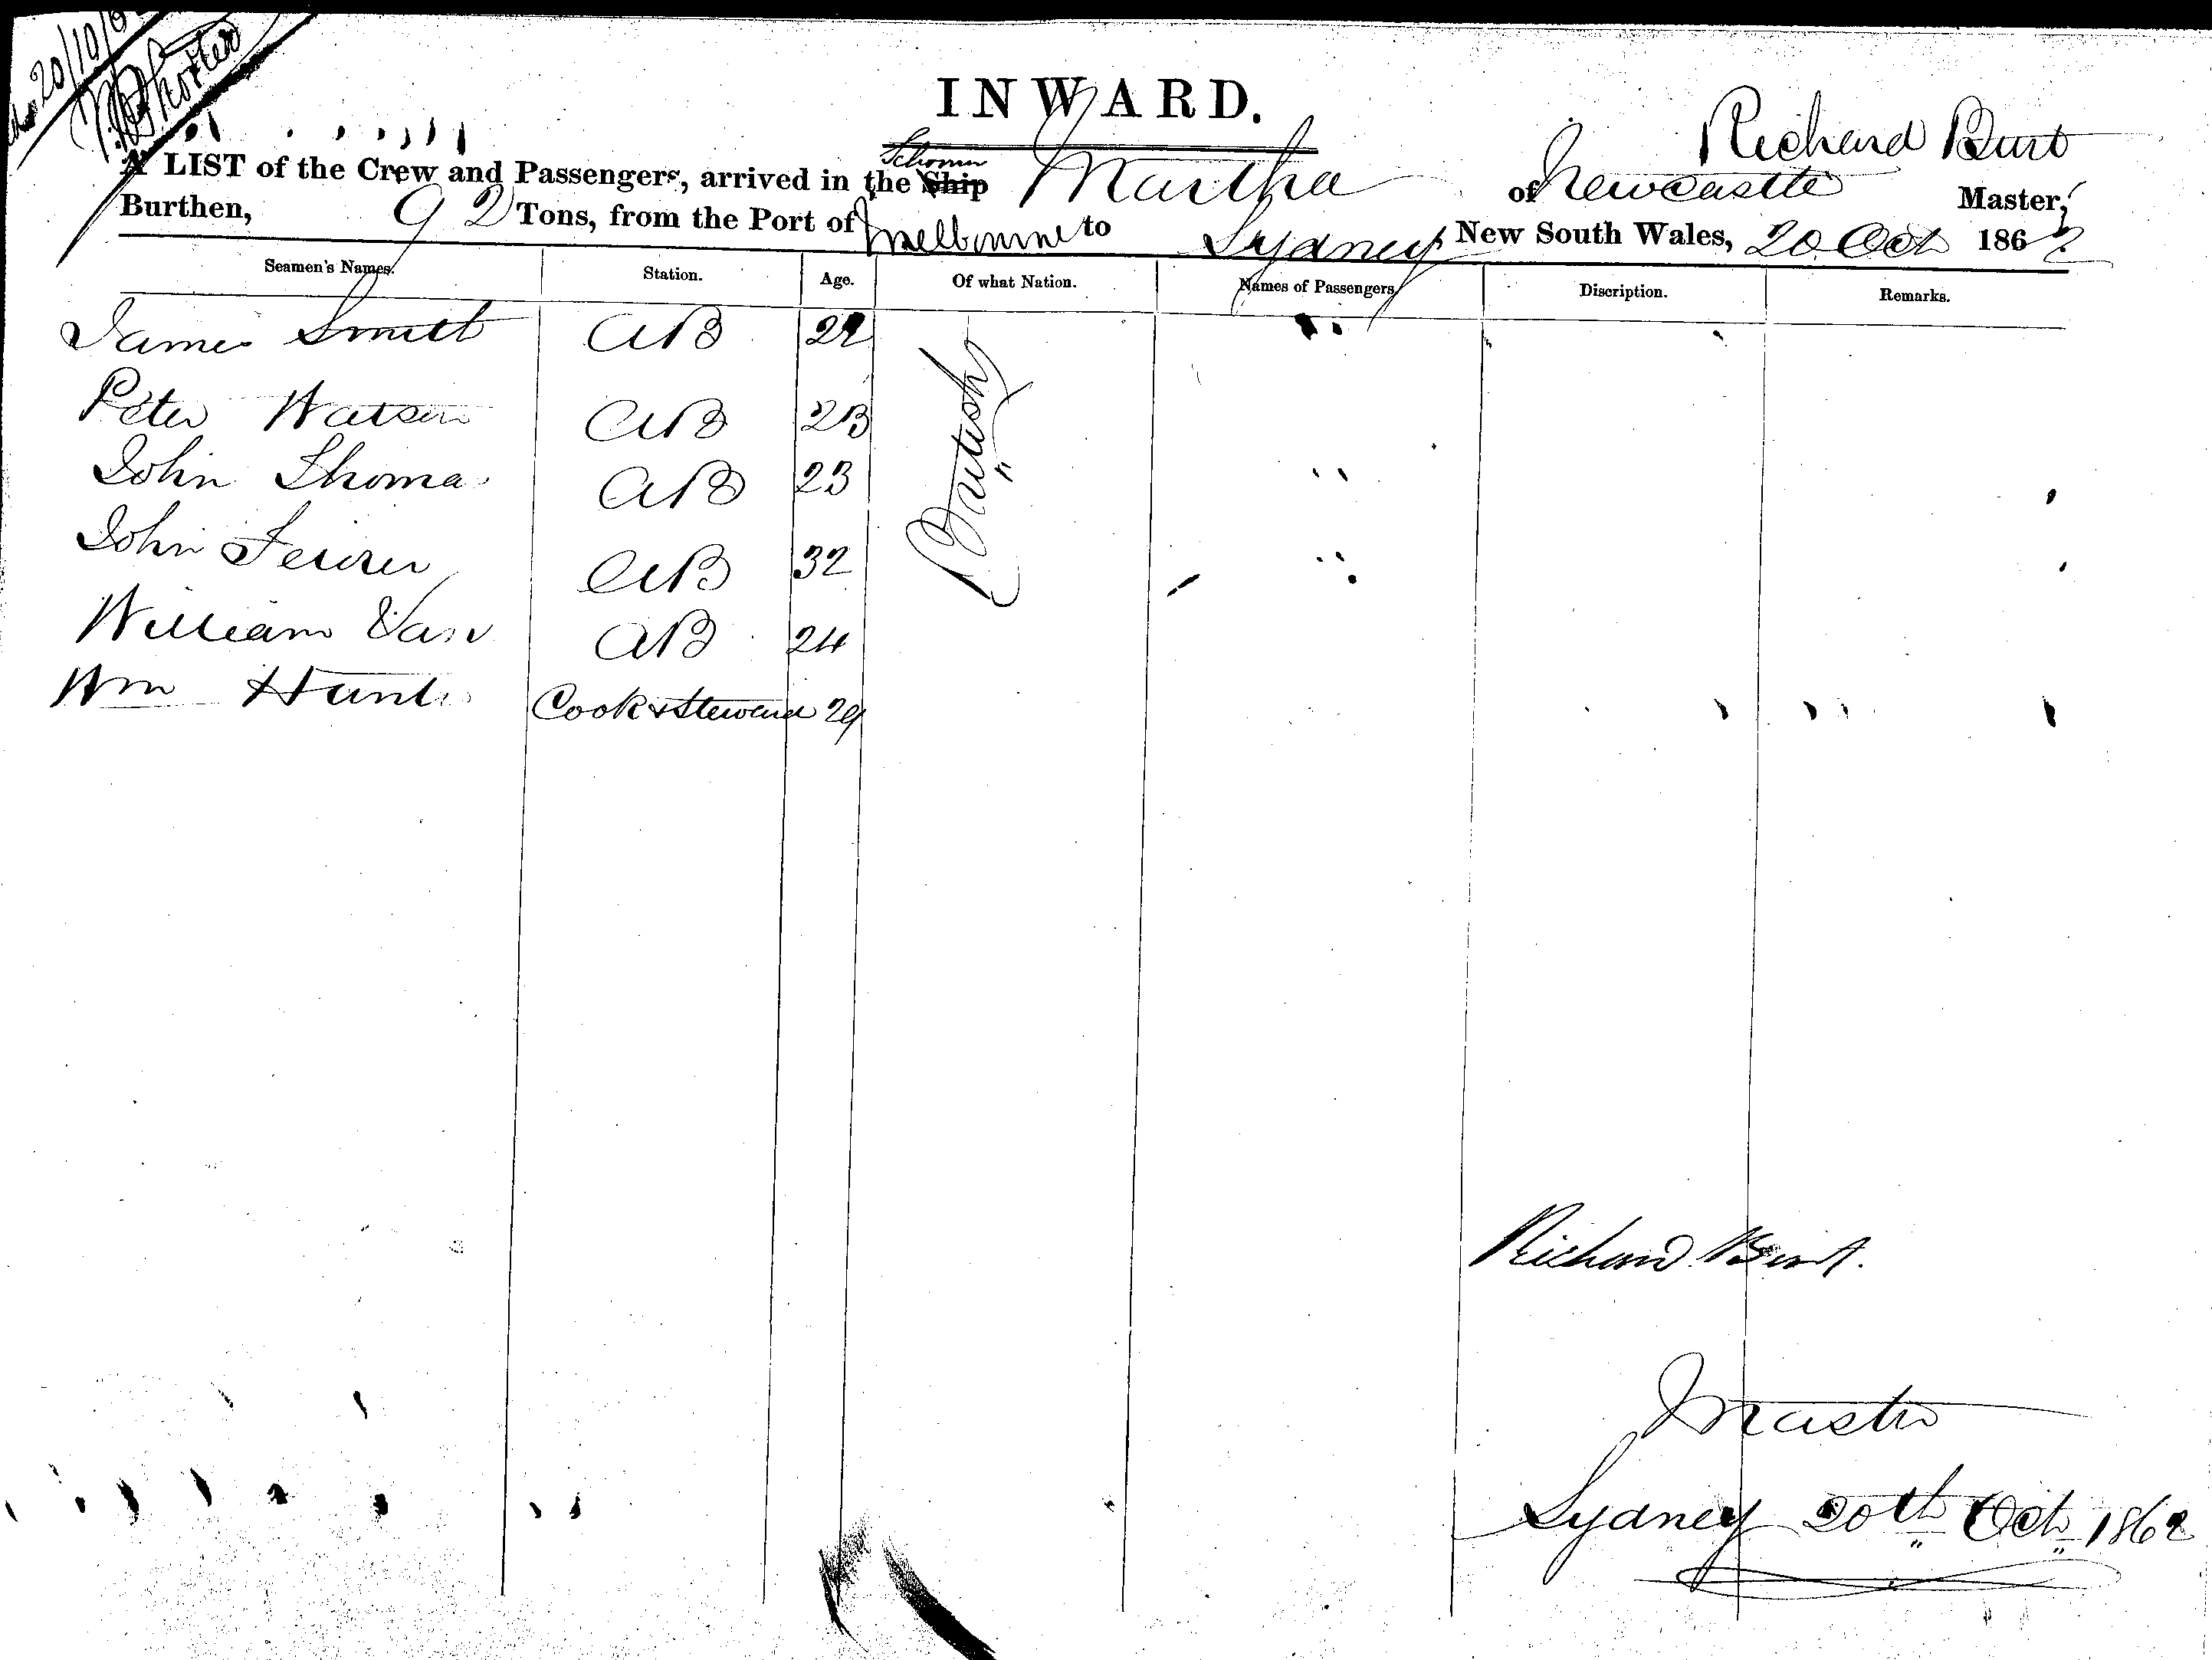 20/10/6
Shorter
INWARD.
A LIST of the Crew and Passengers, arrived in the Ship Schooner Martha of Newcastle Richard Burt Master,
Burthen, 92 Tons, from the Port of Melbourne to Sydney New South Wales, 20 Oct 1862
Seamen's Names. Station. Age. Of what Nation. Names of Passengers Discription. Remarks.
James Smith AB 22 British
Peter Watson AB 23
John Thomas AB 23
John AB 32
William AB 24
Wm Hunt Cook & Steward 29
Richard Burt.
Master
Sydney 20th Oct 1862